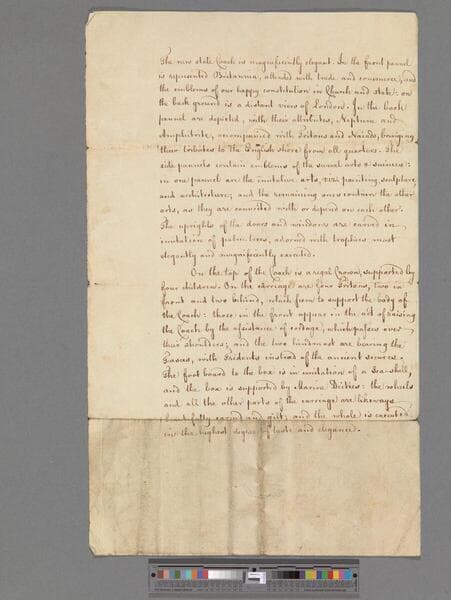 The new state Coach is magnificently elegant. In the front pannel
is represented Britannia, attended with trade and commerce, and
the emblems of our happy constitution in Church and state: on
the back ground is a distant view of London. In the back
pannel are depicted, with their attributes, Neptune and
Amphitrite, accompanied with Tritons and Naiads, bringing
their tributes to the English shore from all quarters. The
side pannels contain emblems of the sevral arts & sciences:
in one pannel are the imitative arts, viz: painting, sculpture,
and architecture; and the remaining ones contain the other
arts, as they are connected with or depend on each other.
The uprights of the doors and windows are carved in
imitation of palm-trees, adorned with trophies most
elegantly and magnificently executed.
On the top of the Coach is a regal Crown, supported by
four children. On the carriage are four Tritons, two in
front and two behind, which seem to support the body of
the Coach: those in the front appear in the act of raising
the Coach by the assistance of cordage, which passes over
their shoulders; and the two hindmost are bearing the
Fasces, with Tridents instead of the ancient secures.
The foot board to the box is in imitation of a Sea-shell,
and the box is supported by Marine Deities: the wheels
and all the other parts of the carriage are likeways
beautifully carved and gilt; and the whole is executed
in the highest degree of taste and elegance.